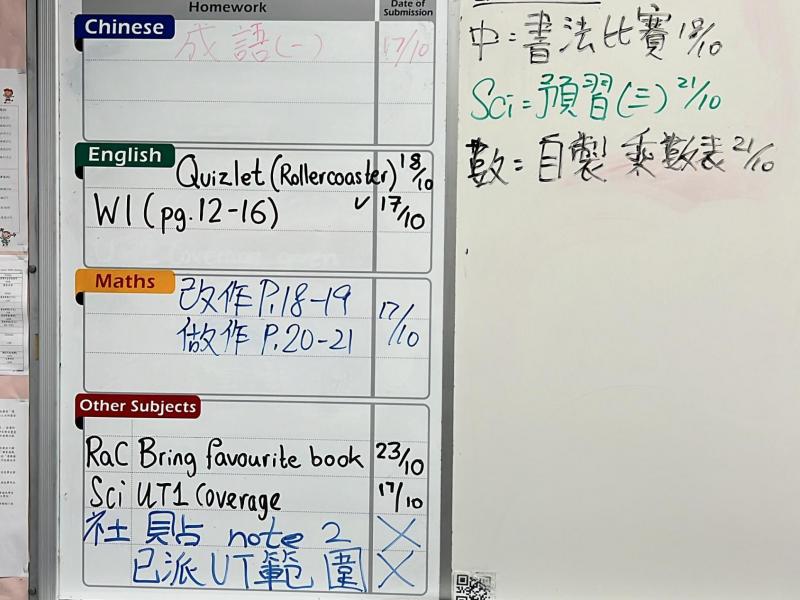 Homework
Date of Submission
Chinese
成語(一) 17/10
English
Quizlet (Rollercoaster) 18/10
W1 (pg.12-16) ✓ 17/10
Maths
改作 P.18-19 17/10
做作 P.20-21
Other Subjects
RaC Bring favourite book 23/10
Sci UT1 Coverage 17/10
社 貼 note 2 X
已派UT範圍 X
中=書法比賽 18/10
Sci=預習(三) 21/10
數=自製 乘數表 21/10